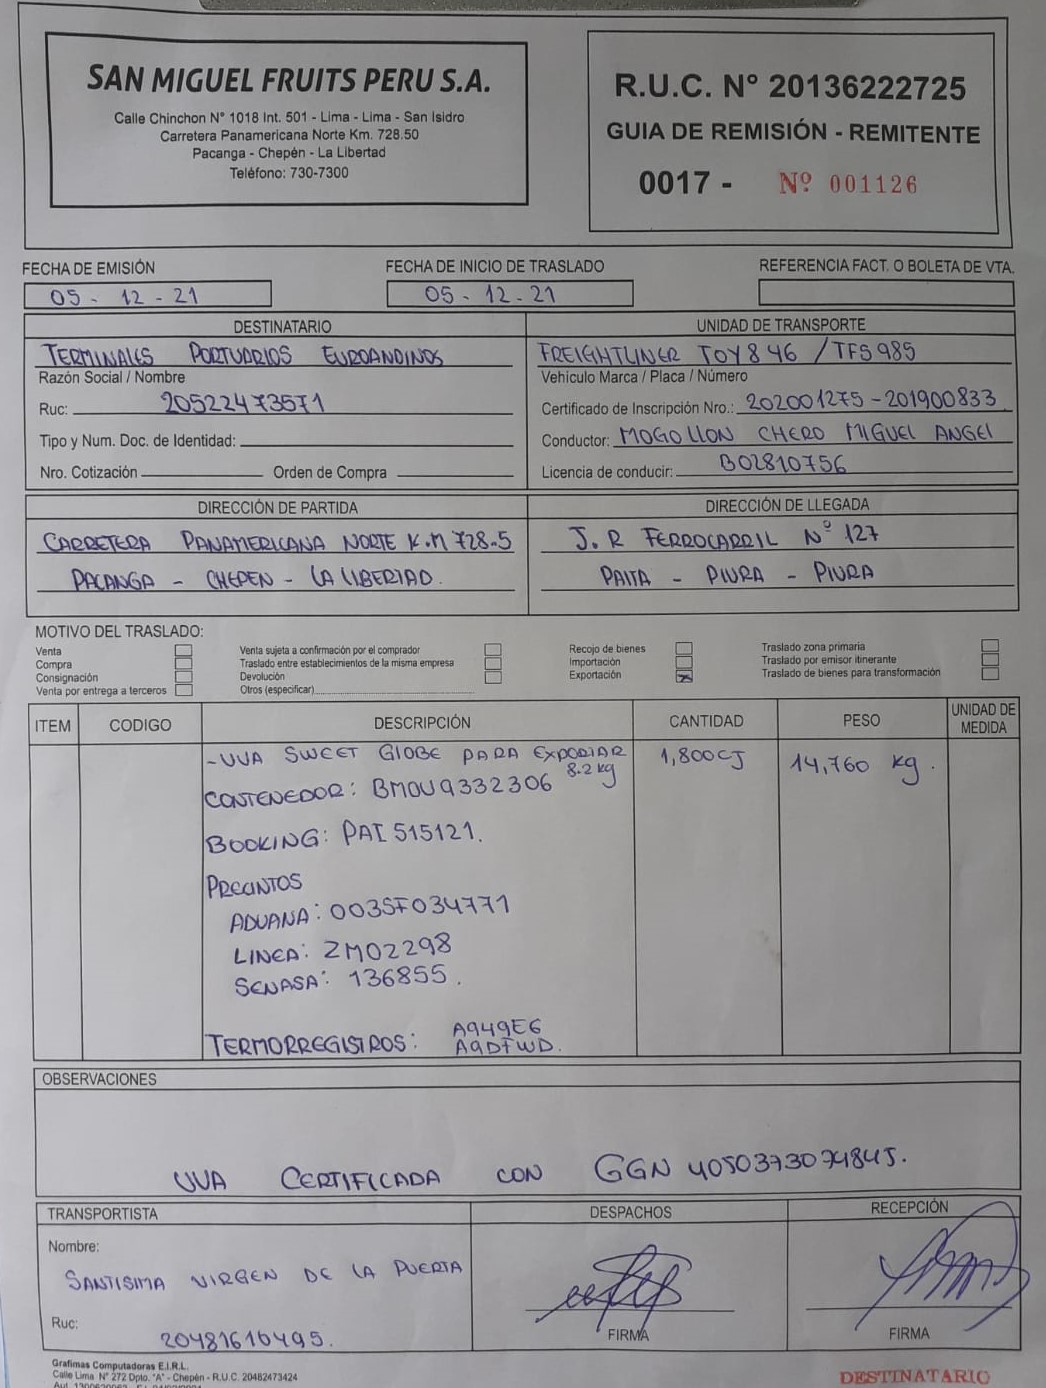 SAN MIGUEL FRUITS PERU S.A.
Calle Chinchon N° 1018 Int. 501 - Lima - Lima - San Isidro
Carretera Panamericana Norte Km. 728.50
Pacanga - Chepén - La Libertad
Teléfono: 730-7300
R.U.C. N° 20136222725
GUIA DE REMISIÓN - REMITENTE
0017 - Nº 001126
FECHA DE EMISIÓN
05 - 12 - 21
FECHA DE INICIO DE TRASLADO
05 - 12 - 21
REFERENCIA FACT. O BOLETA DE VTA.
DESTINATARIO
TERMINALES PORTUARIOS EUROANDINOS
Razón Social / Nombre
Ruc: 20522473571
Tipo y Num. Doc. de Identidad:
Nro. Cotización Orden de Compra
UNIDAD DE TRANSPORTE
FREIGHTLINER TOY846 / TFS985
Vehículo Marca / Placa / Número
Certificado de Inscripción Nro.: 202001275-201900833
Conductor: MOGOLLON CHERO MIGUEL ANGEL
Licencia de conducir: B02810756
DIRECCIÓN DE PARTIDA
CARRETERA PANAMERICANA NORTE K.M 728.5
PACANGA - CHEPEN - LA LIBERTAD.
DIRECCIÓN DE LLEGADA
J.R FERROCARRIL Nº 127
PAITA - PIURA - PIURA
MOTIVO DEL TRASLADO:
Venta
Compra
Consignación
Venta por entrega a terceros
Venta sujeta a confirmación por el comprador
Traslado entre establecimientos de la misma empresa
Devolución
Otros (especificar)
Recojo de bienes
Importación
Exportación X
Traslado zona primaria
Traslado por emisor itinerante
Traslado de bienes para transformación
ITEM CODIGO DESCRIPCIÓN CANTIDAD PESO UNIDAD DE MEDIDA
-UVA SWEET GLOBE PARA EXPORTAR 1,800CJ 14,760 kg.
8.2 kg
CONTENEDOR: BMOU9332306
BOOKING: PAI515121.
PRECINTOS
ADUANA: 003SF034771
LINEA: ZM02298
SENASA: 136855.
TERMORREGISTROS: A949E6
A9DFWD.
OBSERVACIONES
UVA CERTIFICADA CON GGN 4050373074845.
TRANSPORTISTA
Nombre:
SANTISIMA VIRGEN DE LA PUERTA
Ruc:
20481610495.
DESPACHOS
FIRMA
RECEPCIÓN
FIRMA
Grafimas Computadoras E.I.R.L.
Calle Lima N° 272 Dpto. "A" - Chepén - R.U.C. 20482473424
DESTINATARIO